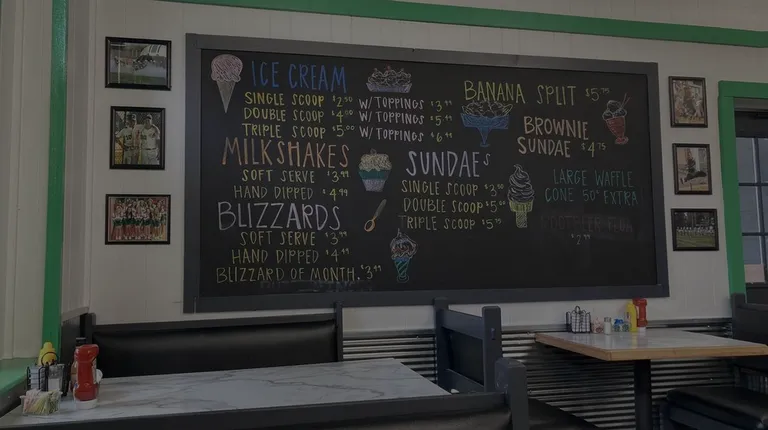 ICE CREAM
SINGLE SCOOP $2.50 W/TOPPINGS $3.99
DOUBLE SCOOP $4.00 W/TOPPINGS $5.49
TRIPLE SCOOP $5.00 W/TOPPINGS $6.99
MILKSHAKES
SOFT SERVE $3.99
HAND DIPPED $4.99
BLIZZARDS
SOFT SERVE $3.99
HAND DIPPED $4.99
BLIZZARD OF MONTH. $3.99
SUNDAEs
SINGLE SCOOP $3.50
DOUBLE SCOOP $5.00
TRIPLE SCOOP $5.99
BANANA SPLIT $5.75
BROWNIE
SUNDAE $4.75
LARGE WAFFLE
CONE 50¢ EXTRA
$2.99